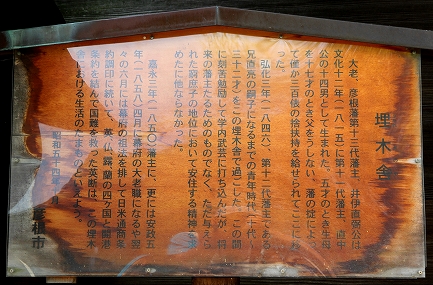 埋木舎
大老、彦根藩第十三代藩主、井伊直弼公は
文化十二年（一八一五）に第十一代藩主、直中
公の十四男として生まれた。五才のとき生母
を、十七才のとき父をうしない、藩の掟によっ
て僅か三百俵の捨扶持を給せられてここに移
った。
弘化三年（一八四六）、第十二代藩主である
兄直亮の嗣子になるまでの青年時代（十七〜
三十二才）をこの埋木舎で過ごした。この間
に刻苦勉励して学内武芸に打ち込んだが、将
来の藩主たるためのものでなく、ただ与えら
れた部屋の地位において安住する精神を求
めたに他ならなかった。
嘉永三年（一八五〇）藩主に、更には安政五
年（一八五八）四月に幕府の大老職になるや翌
々の六月には幕府の祖法を排して日米通商条
約調印に続いて、英、仏、露、蘭の四ヶ国と開港
条約を結んで国難を救った英断は、この埋木
舎における生活のたまものといえよう。
昭和五十四年
彦根市